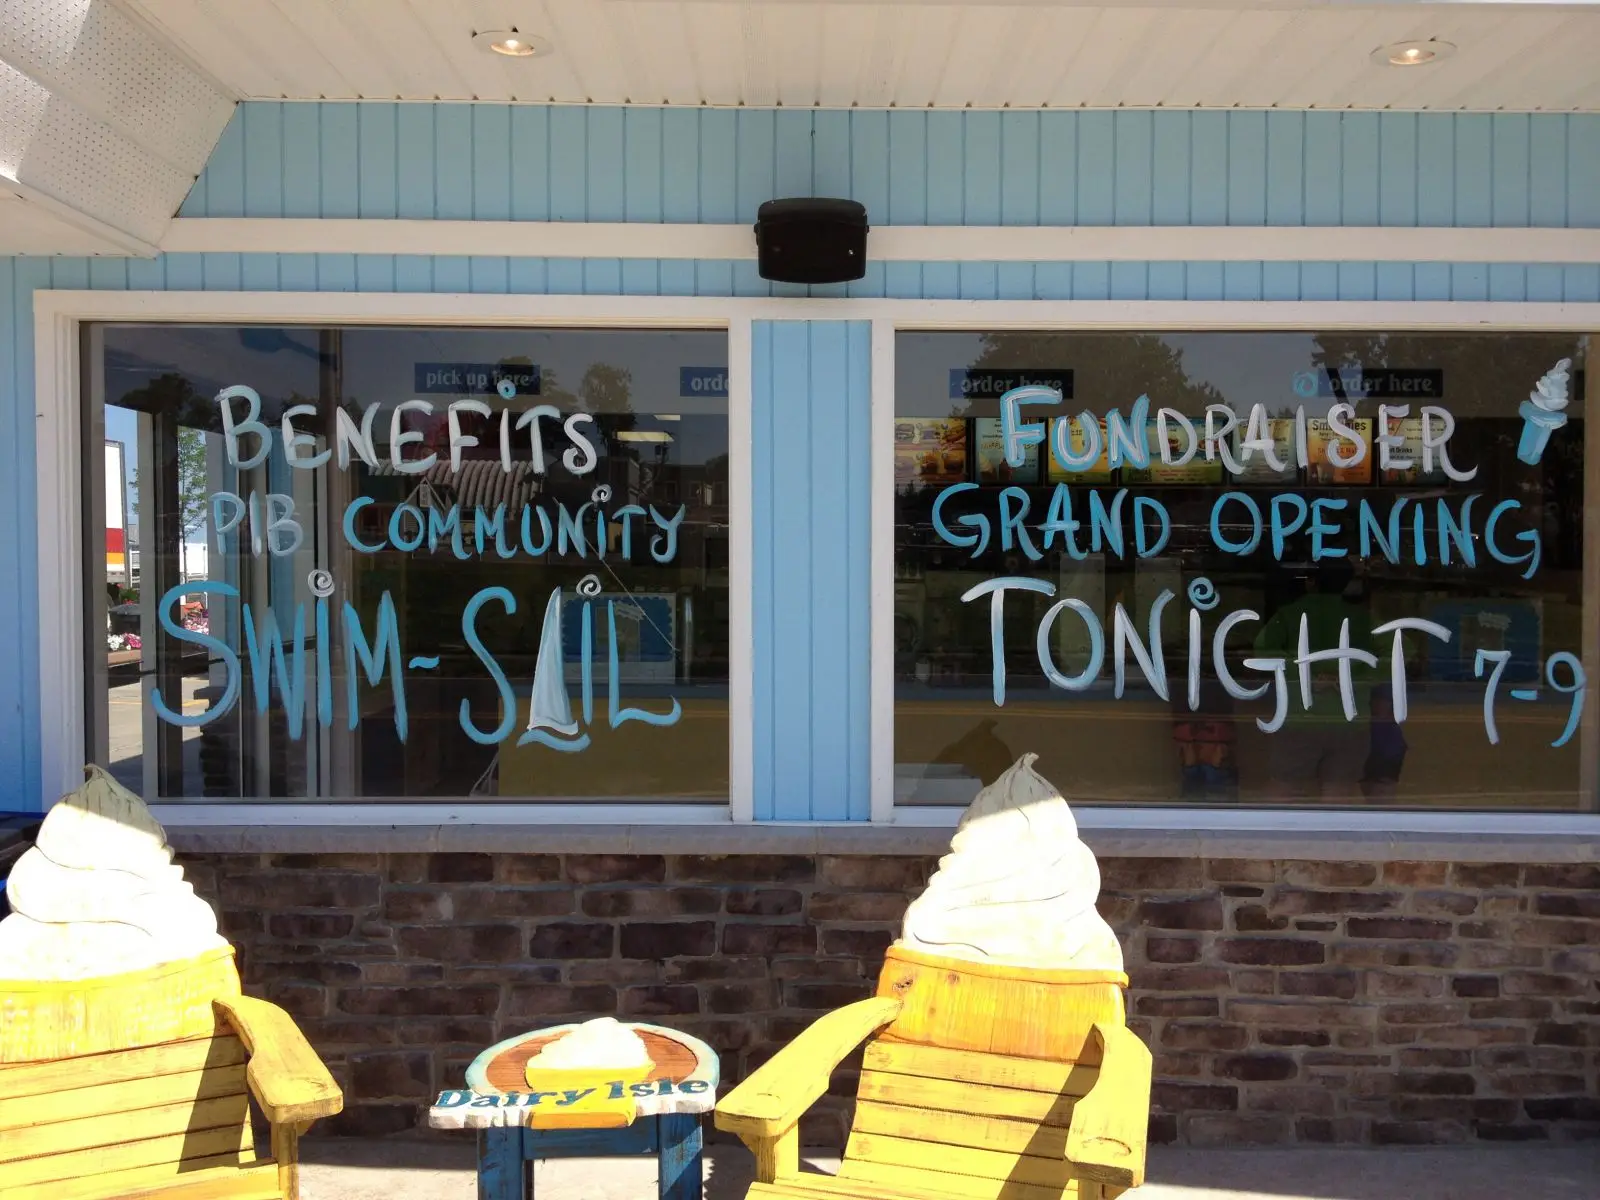 pick up here
orde
order here
order here
BENEFiTS
PIB COMMUNiTY
SWiM~SAiL
FUNDRAISER
GRAND OPENING
TONiGHT 7-9
Dairy Isle